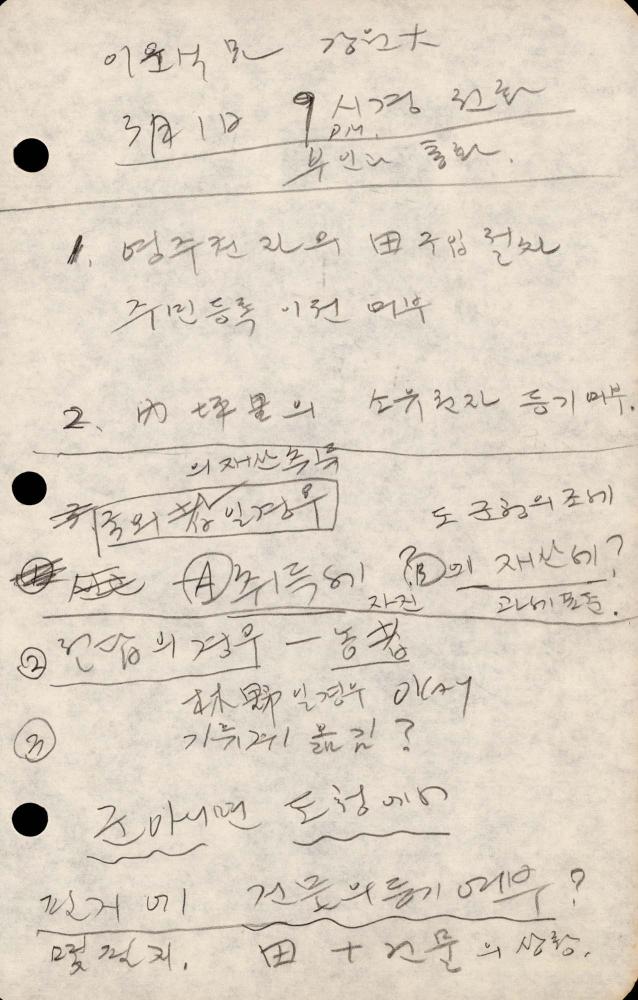 이윤석 교 강원大
3月 1日 9시경 전화
P.M.
부인과 통화.
1. 영주권자의 田 구입 절차
주민등록 이전 여부
2. 内坪里의 소유권자 등기 여부.
의 재산취득
국외 일경우
도 군청의 조례
Ⓐ 취득세 Ⓑ의 재산세?
자진 과세표준.
② 전답의 경우 — 농
林野일경우 okay
③ 기류계 옮김?
군 아니면 도청에서
건물의 등기 여부?
몇 번지. 田 + 건물의 상황.